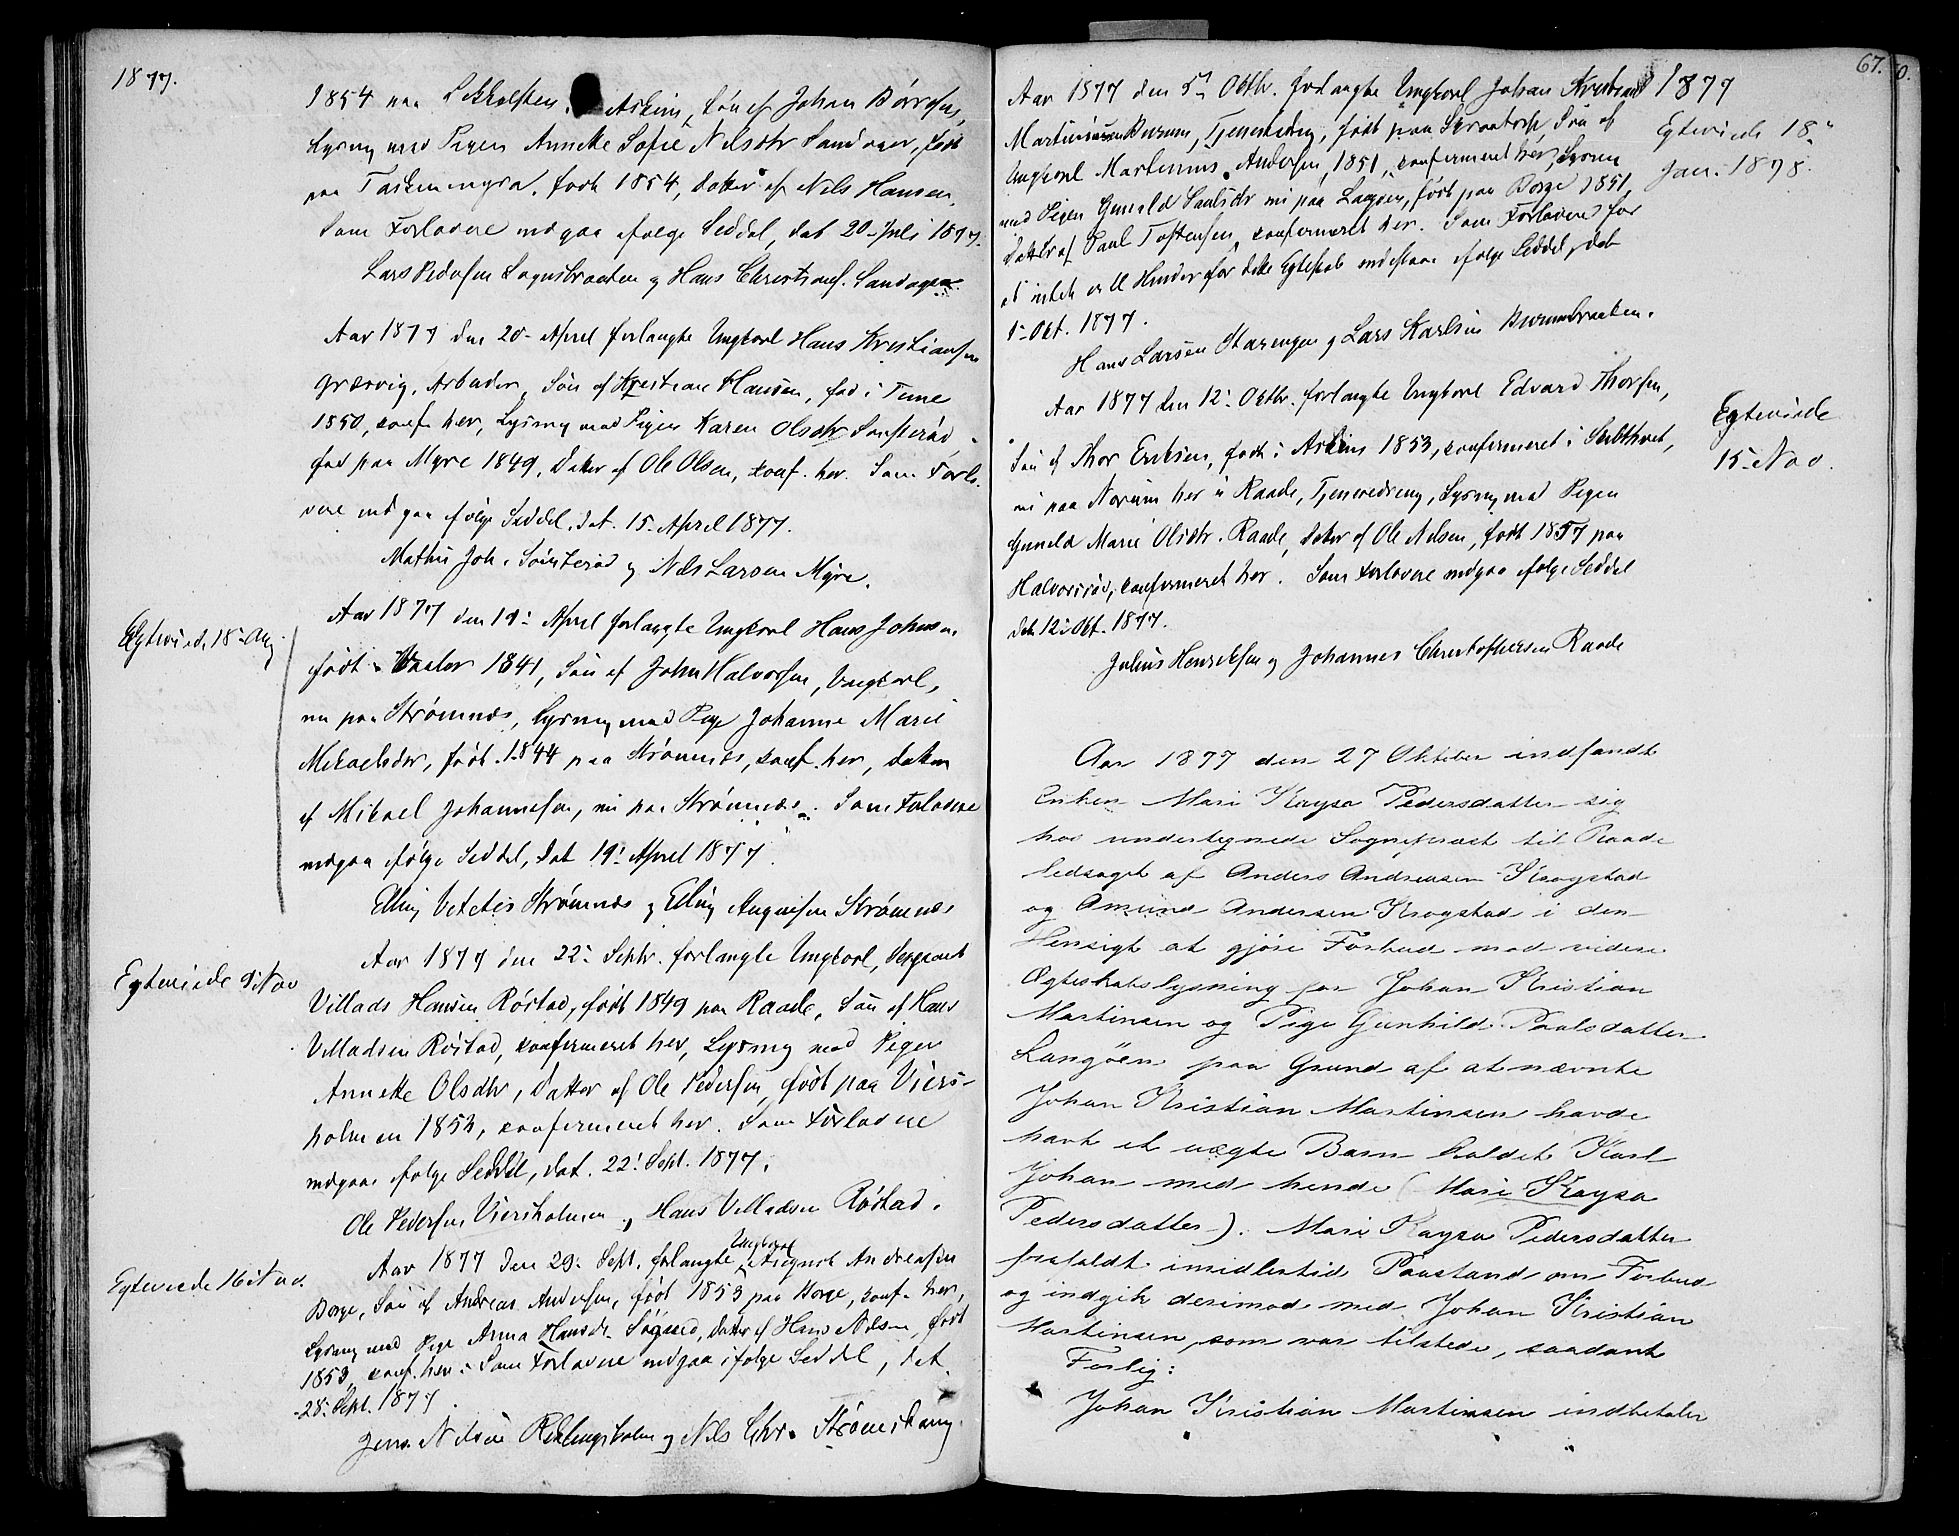 1877.
1854 paa Askim, Søn af Johan Børresen,
Lysning med Pigen Annette Sofie Nilsdtr Sandager, født
paa Taskenmyra. født 1854, Datter af Nils Hansen.
Som Forlovere indgaa ifølge Seddel, dat 20 Juli 1877.
Lars Pedersen Sognsbraaten og Hans Christians. Sandager.
Aar 1877 den 20 April forlangte Ungkarl Hans Kristiansen
Græsvig, Arbeider, Søn af Kristian Hansen, fød i Tune
1850, conf. her, Lysning med Pigen Karen Olsdtr Sonsterød
fød paa Myre 1849, Datter af Ole Olsen, conf. her. Som Forlo-
vere indgaa ifølge Seddel, dat. 15 April 1877.
Mathis Joh. Sønsterød og Nils Larsen Myre.
Egteviede 18 Aug
Aar 1877 den 19 April forlangte Ungkarl Hans Johnsen,
født i Vaaler 1841, Søn af John Halvorsen, Ungkarl,
nu paa Strømnæs, Lysning med Pige Johanne Marie
Mikaelsdtr, født 1844 paa Strømnæs, conf. her, Datter
af Mikael Johannesen, nu paa Strømnæs. Som Forlovere
indgaa ifølge Seddel, dat 19 April 1877.
Elling Strømnæs og Elling Augustsen Strømnæs
Egteviede 9 Nov
Aar 1877 den 22 Septr. forlangte Ungkarl, Sergeant
Villads Hansen Røstad, født 1849 paa Raade, Søn af Hans
Villadsen Røstad, confirmeret her, Lysning med Pigen
Annette Olsdtr, Datter af Ole Pedersen, født paa Viers-
holmen 1853, confirmeret her. Som Forlovere
indgaa ifølge Seddel, dat. 22 Sept. 1877.
Ole Pedersen Viersholmen, Hans Villadsen Røstad.
Egteviede 16 Nov.
Aar 1877 den 29 Sept. forlangte Ungkarl August Andreasen
Borge, Søn af Andreas Andersen, født 1853 paa Borge, conf. her,
Lysning med Pige Anna Hansdtr. Datter af Hans Nilsen, født
1853, conf. her. Som Forlovere indgaa ifølge Seddel, dat
28 Sept. 1877.
Jens Nilsen og Nils Chr. Strømshaug.
67.
1877
Aar 1877 den 5 Oktbr. forlangte Ungkarl Johan Kristian
Martinsen Burum, født paa Søn af
Ungkarl Martinus Andersen, 1851, confirmeret her, Lysning
med Pigen Gunild Paulsdtr nu paa Langøen, født paa Borge 1851,
Datter af Paul Tostensen, confirmeret her. Som Forlovere for
at intet er til Hinder for dette Egteskab indestaa ifølge Seddel, dat
1 Okt. 1877.
Hans Larsen Starengen og Lars Karlsen Burumbraaten.
Egteviede 18
Jan. 1878.
Aar 1877 den 12 Oktbr. forlangte Ungkarl Edvard Thorsen,
Søn af Thor Eriksen, født i Askim 1853, confirmeret i Skibthvet,
nu paa Norum her i Raade, Tjenestedreng, Lysning med Pigen
Gunild Marie Olsdtr. Raade, Datter af Ole Nilsen, født 1857 paa
Halvorsrød, confirmeret her. Som Forlovere indgaa ifølge Seddel
dat. 12 Okt. 1877.
Julius Henriksen og Johannes Christophersen Raade
Egteviede
15 Nov.
Aar 1877 den 27 Oktober indfandt
Enken Mari Kaysa Pedersdatter sig
hos undertegnede Sognepræst til Raade
ledsaget af Anders Andreasen Krogstad
og Amund Andersen Krogstad i den
Hensigt at gjøre Forbud mod videre
Ægteskabslysning for Johan Kristian
Martinsen og Pige Gunhild Paalsdatter
Langøen paa Grund af at nævnte
Johan Kristian Martinsen havde
havt et uægte Barn kaldet Karl
Johan med hende (Mari Kaysa
Pedersdatter). Mari Kaysa Pedersdatter
frafaldt imidlertid Paastand om Forbud
og indgik derimod med Johan Kristian
Martinsen, som var tilstede, saadant
Forlig:
Johan Kristian Martinsen indbetaler